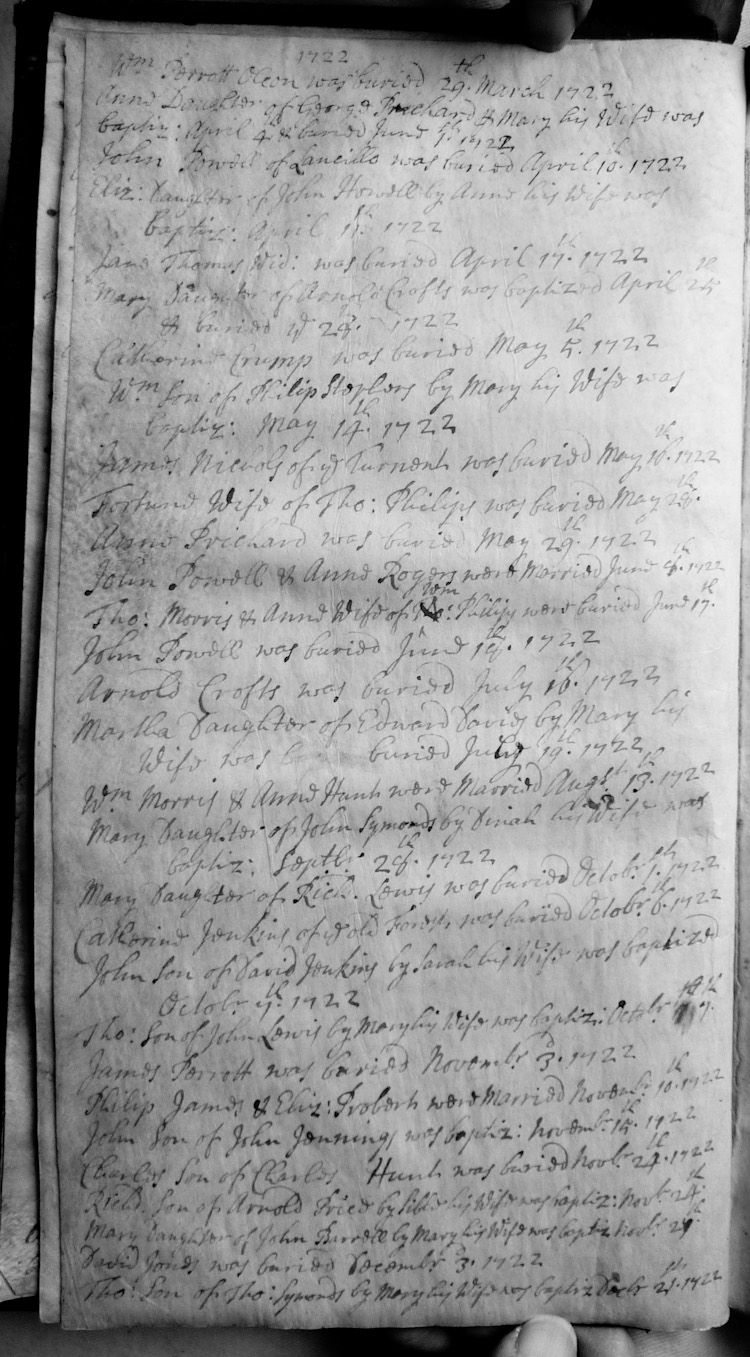 1722
Wm Perrott was buried 29th March 1722
Anne Daughter of George Prichard & Mary his Wife was
baptiz: April 4th & buried June 1722
John Powell of Lancillo was buried April 10th 1722
Eliz: Daughter of John Howell by Anne his Wife was
baptiz: April 1722
Jane Thomas Wid: was buried April 17th 1722
Mary Daughter of Arnold Crofts was baptized April 25th
& buried ye 1722
Catherine Crump was buried May 5th 1722
Wm Son of Philip Stephens by Mary his Wife was
baptiz: May 14th 1722
James Nichols of ye was buried May 16th 1722
Fortune Wife of Tho: Philips was buried May
Anne Prichard was buried May 29th 1722
John Powell & Anne Rogers were Married June 1722
Tho: Morris & Anne Wife of Wm Philips were buried June 17th
John Powell was buried June 1722
Arnold Crofts was buried July 16th 1722
Martha Daughter of Edward Davies by Mary his
Wife was buried July 19th 1722
Wm Morris & Anne Hunt were Married Augst 13th 1722
Mary Daughter of John Symonds by Dinah his Wife was
baptiz: Septbr 1722
Mary Daughter of Rich. Lewis was buried Octobr 1722
Catherine Jenkins of ye old Forest was buried Octobr 6th 1722
John Son of David Jenkins by Sarah his Wife was baptized
Octobr 1722
Tho: Son of John Lewis by Mary his Wife was baptiz: Octobr
James Perrott was buried Novembr 3d 1722
Philip James & Eliz: Probert were Married Novembr 10th 1722
John Son of John Jennings was baptiz: Novembr 1722
Charles Son of Charles Hunt was buried Novbr 24th 1722
Richd. Son of Arnold Price by Sible his Wife was baptiz: Novbr 24th
Mary Daughter of John by Mary his Wife was baptiz Novbr
David Jones was buried Decembr 3d 1722
Tho: Son of Tho: Symonds by Mary his Wife was baptiz Decbr 1722